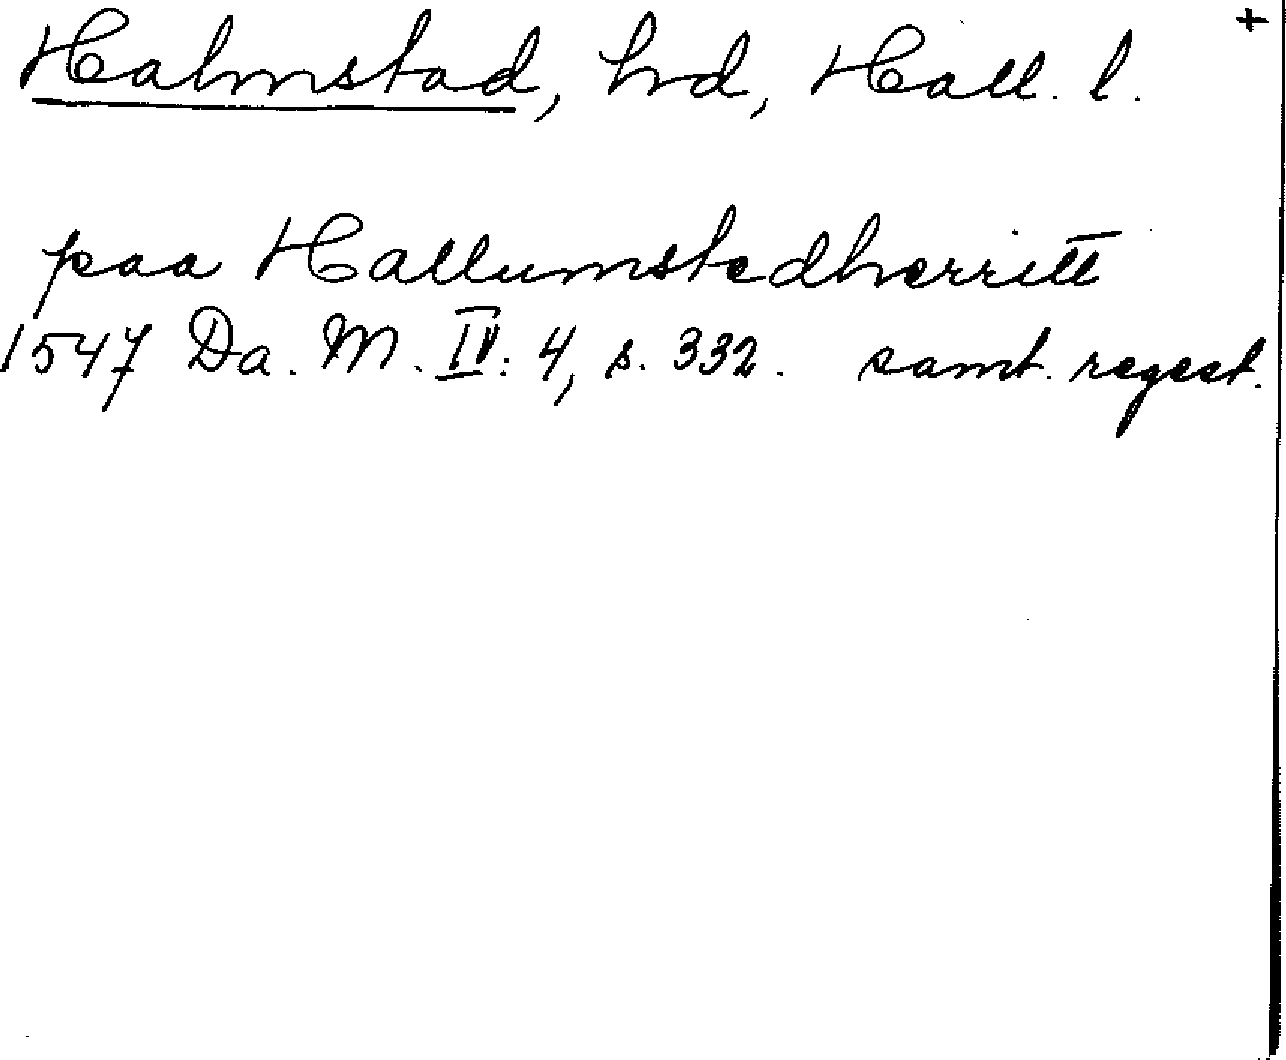 Halmstad, hd, Hall. l. +
paa Hallumstedherritt
1547 Da. M. IV: 4, s. 332. samt. regest.